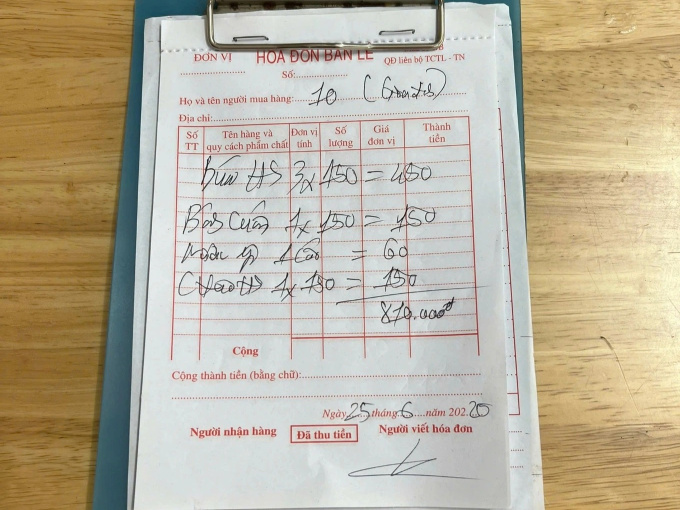 ĐƠN VỊ HOÁ ĐƠN BÁN LẺ
QĐ liên bộ TCTL - TN
Số:
Họ và tên người mua hàng: 10
Địa chỉ:
Số TT Tên hàng và quy cách phẩm chất Đơn vị tính Số lượng Giá đơn vị Thành tiền
Bún HS 3 x 150 = 450
Bánh Cuốn 1 x 150 = 150
= 60
Cháo HS 1 x 150 = 150
810.000đ
Cộng
Cộng thành tiền (bằng chữ):
Ngày 25 tháng 6 năm 202 20
Người nhận hàng Đã thu tiền Người viết hóa đơn